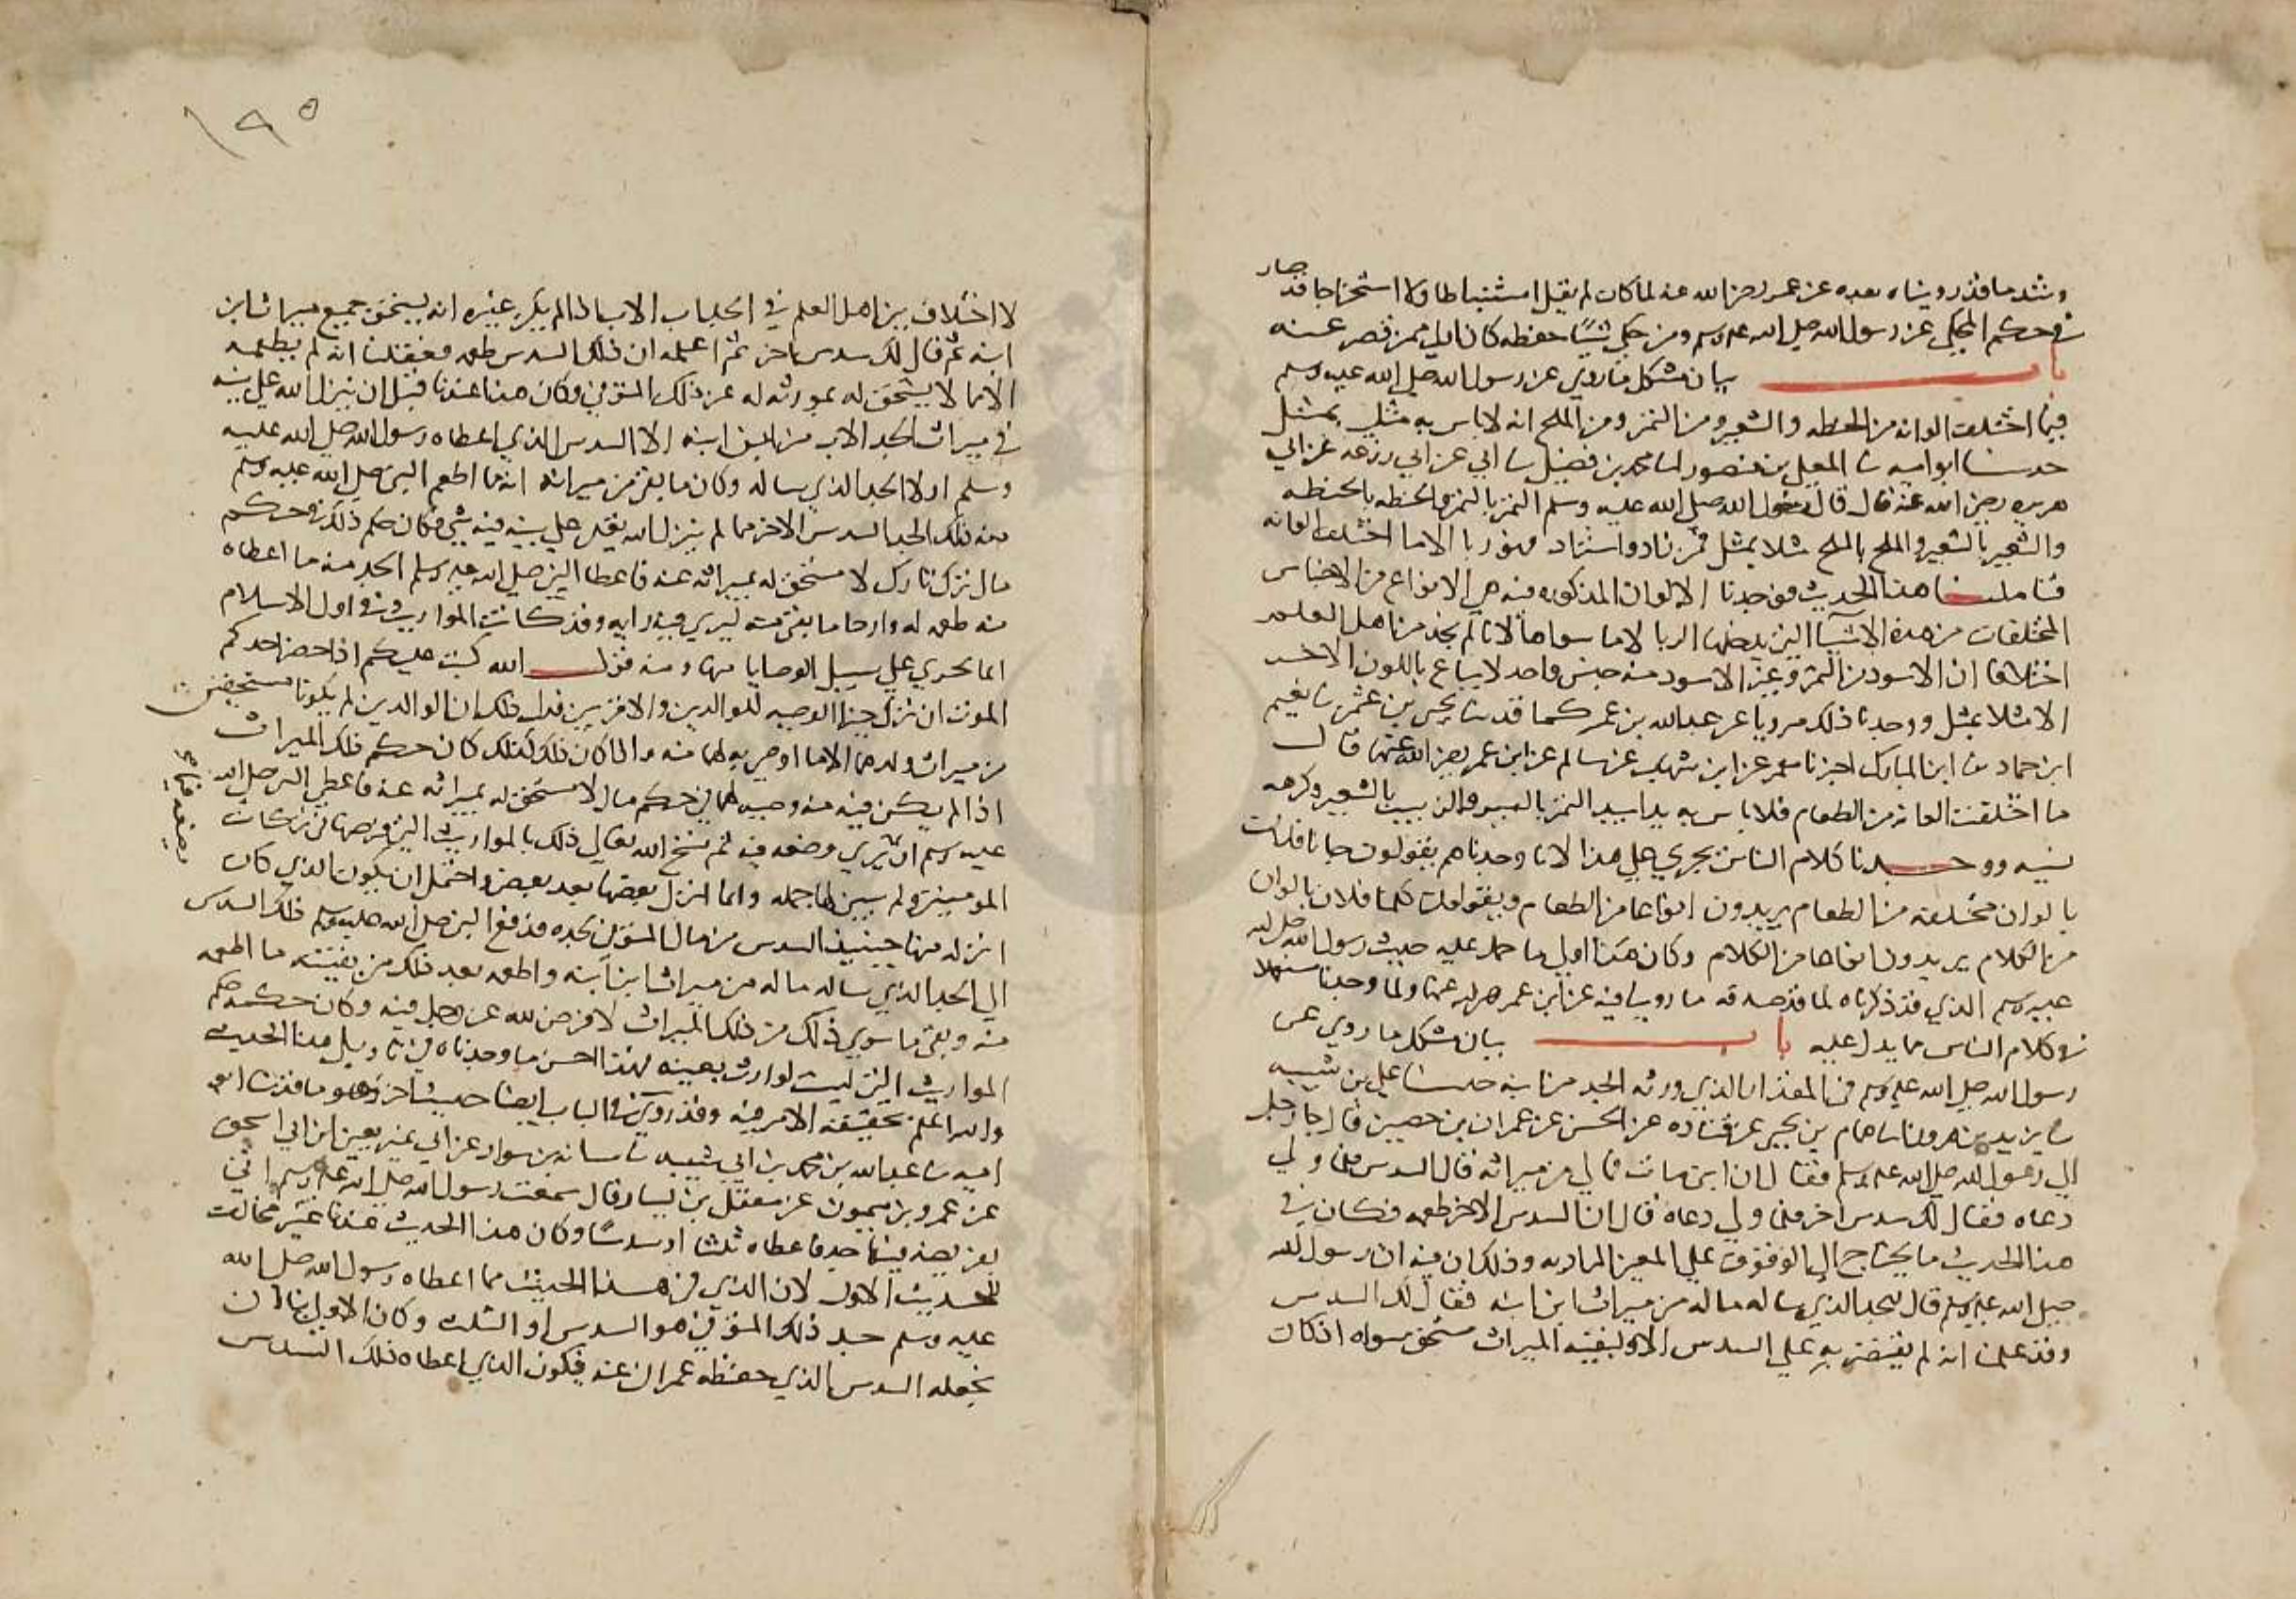 وشد ما قد رويناه بعده عن عمر رضي الله عنه لما كان لم يقل استنباطا ولا استخراجا قد صار
في حكم المحكي عن رسول الله صلى الله عليه وسلم ومن حكى شيئا حفظه كان اولى ممن قصر عنه
باب بيان مشكل ما روي عن رسول الله صلى الله عليه وسلم
فيما اختلفت الوانه من الحنطه والشعير ومن التمر ومن الملح انه لا باس به مثلين بمثل
حدثنا ابو اميه ثنا المعلى بن منصور انا محمد بن فضيل ثنا ابي عن ابي زرعه عن ابي
هريره رضي الله عنه قال قال رسول الله صلى الله عليه وسلم التمر بالتمر والحنطه بالحنطه
والشعير بالشعير والملح بالملح مثلا بمثل فمن زاد واستزاد فهو ربا الا ما اختلفت الوانه
فتاملنا هذا الحديث فوجدنا الالوان المذكوره فيه هي الانواع من الاجناس
المختلفات من هذه الاشيا التي يدخلها الربا لا ما سواها لانا لم نجد من اهل العلم
اختلافا ان الاسود من التمر وغير الاسود منه جنس واحد لا يباع باللون الاخر
الا مثلا بمثل ووجدنا ذلك مرويا عن عبد الله بن عمر كما قد ثنا يحيى بن عثمن ثنا نعيم
ابن حماد ثنا ابن المبارك اخبرنا معمر عن ابن شهاب عن سالم عن ابن عمر رضي الله عنهما قال
ما اختلفت الوانه من الطعام فلا باس به يدا بيد التمر بالبر والزبيب بالشعير وكرهه
نسيه ووجدنا كلام الناس يجري على هذا لانا وجدناهم يقولون جانا فلان
بالوان مختلفه من الطعام يريدون انواعا من الطعام ويقولون كلمنا فلان بالوان
من الكلام يريدون انواعا من الكلام وكان هذا اولى ما حمل عليه حديث رسول الله صلى الله
عليه وسلم الذي قد ذكرناه لما قد صدقه ما روينا فيه عن ابن عمر رضي الله عنهما ولما وجدنا مستعملا
في كلام الناس مما يدل عليه باب بيان مشكل ما روي عن
رسول الله صلى الله عليه وسلم في المقدار الذي ورثه الجد من ابنه حدثنا علي بن شيبه
ثنا يزيد بن هرون انا همام بن يحيى عن قتاده عن الحسن عن عمران بن حصين قال جا رجل
الى رسول الله صلى الله عليه وسلم فقال ان ابن ابني مات فما لي من ميراثه قال السدس فلما ولي
دعاه فقال لك سدس اخر فلما ولي دعاه قال ان السدس الاخر طعمه فكان في
هذا الحديث ما يحتاج الى الوقوف على المعنى المراد به وذلك ان فيه ان رسول الله
صلى الله عليه وسلم قال للجد الذي ساله ما له من ميراث ابن ابنه فقال لك السدس
وقد علمنا انه لم يقتصر به على السدس الا ولبقيه الميراث مستحق سواه اذ كان
١٩٥
لا اختلاف بين اهل العلم في الجد اب الاب اذا لم يكن غيره انه يستحق جميع ميراث ابن
ابنه ثم قال لك سدس اخر ثم اعلمه ان ذلك السدس طعمه فعقلنا انه لم يطعمه
الا ما لا يستحق له بمورثه له عن ذلك المتوفى وكان هذا عندنا قبل ان ينزل الله على نبيه
في ميراث الجد الاب من ابن ابنه الا السدس الذي اعطاه رسول الله صلى الله عليه
وسلم اولا الجد الذي ساله وكان ما بقي من ميراثه انه ما اطعم النبي صلى الله عليه وسلم
منه ذلك الجد السدس الاخر مما لم ينزل الله تعالى على نبيه فيه شي فكان حكم ذلك في حكم
مال تركه تارك لا مستحق له بميراثه عنه فاعطا النبي صلى الله عليه وسلم الجد منه ما اعطاه
منه طعمه له وارجا ما بقي منه ليري فيه رايه وقد كانت المواريث في اول الاسلام
انما تجري على سبيل الوصايا بها ومنه قول الله كتب عليكم اذا حضر احدكم
الموت ان ترك خيرا الوصيه للوالدين والاقربين فدل ذلك ان الوالدين لم يكونا مستحقين
من ميراث ولدهما الا ما اوصي به لهما منه واذا كان ذلك كذلك كان حكم ذلك الميراث
اذا لم يكن فيه منه وصيه لهما في حكم مال لا مستحق له بميراثه عنه فاعطى النبي صلى الله
عليه وسلم ان يري وضعه فيه ثم نسخ الله تعالى ذلك بالمواريث التي فرضها في تركات
المومنين ولم يبين لها جمله وانما انزل بعضها بعد بعض واحتمل ان يكون الذي كان
انزله منها حينئذ السدس من مال المتوفى لجده فدفع النبي صلى الله عليه وسلم ذلك السدس
الى الجد الذي ساله ما له من ميراث ابن ابنه واطعمه بعد ذلك من بقيته ما اطعمه
منه وبقي ما سوى ذلك من ذلك الميراث لا فرض لله عز وجل فيه وكان حكمه حكم
المواريث التي ليست لوارث بعينه فهذا احسن ما وجدناه في تاويل هذا الحديث
والله اعلم بحقيقة الامر فيه وقد روي في الباب ايضا حديث اخر وهو ما قد ثنا ابو
اميه ثنا عبد الله بن محمد بن ابي شيبه ثنا شبابه بن سوار عن ابي يعني ابن ابي اسحق
عن عمرو بن ميمون عن معقل بن يسار قال سمعت رسول الله صلى الله عليه وسلم اتي
بفريضه فيها جد فاعطاه ثلثا او سدسا وكان هذا الحديث عندنا غير مخالف
للحديث الاول لان الذي في هذا الحديث مما اعطاه رسول الله صلى الله
عليه وسلم جد ذلك المتوفى هو السدس او الثلث وكان الاولى بنا ان
نجعله السدس الذي حفظه عمران عنه فيكون الذي اعطاه ذلك السدس